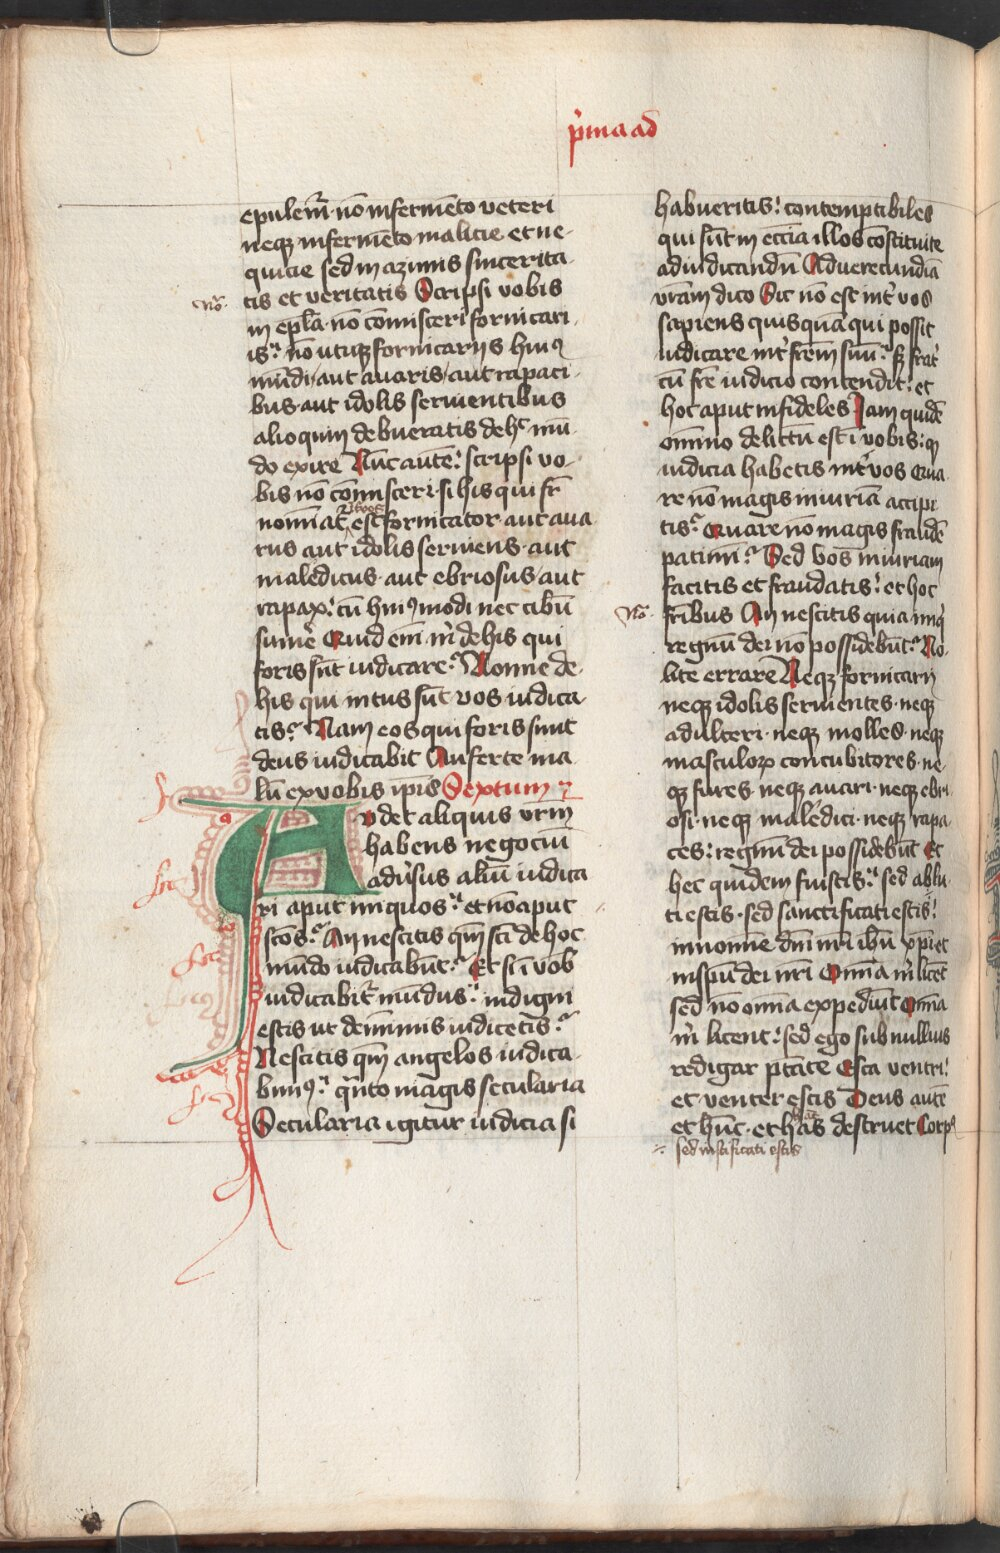 p̾ima ad
epulem̃ · nō in fermēto veteri
neqꝫ in fermēto malicie et ne-
quicie sed in azimis sincerita-
No. tis et veritatis Scripsi vobis
in epl̃a · nō cōmisceri fornicari-
is: nō utiqꝫ fornicariis huiꝰ
mūdi / aut avaris / aut rapaci-
bus · aut idolis servientibus
alioquin debueratis de hᶜ mū-
do exire Nūc autē: scripsi vo-
bis nō cōmisceri · si his qui fr̄
inter vos
nominat̃ est fornicator · aut ava
rus aut idolis serviens · aut
maledicus · aut ebriosus / aut
rapax: cū huiꝰmodi nec cibū
sumē Quid em̄ m̄ de his qui
foris sūt iudicare: Nonne de-
his qui intus sūt vos iudica-
tis: Nam eos qui foris sunt
deus iudicabit Auferte ma-
lū ex vobis ip̄is Sextum
Audet aliquis vr̄m
habens negociū
advˀsus aliū iudica
ri aput iniquos: et nō aput
sc̄os: An nescitis qm̄ sc̄i de hoc
mūdo iudicabūt: Et si ī vob̄
iudicabit̄ mūdus: indigni
estis ut de mīmis iudicetis:
Nescitis qm̄ angelos iudica-
bimꝰ: q̄nto magis secularia
Secularia igitur iudicia si
habueritis: contemptibiles
qui sūt in ecc̄ia illos cōstituite
ad iudicandū Ad verecundiā
vr̄am dico Sic nō est int̾ vos
sapiens quisquā qui possit
iudicare int̾ fr̄em suū: sꝫ frat̾
cū fr̄e iudicio contendit: et
hoc aput infideles Iam quidē
omnino delictū est ī vobis: qꝫ
iudicia habetis int̾ vos Qua-
re nō magis iniuriā accipi
tis: Quare nō magis fraudē
patimī: Sed vos iniuriam
facitis et fraudatis: et hoc
No. fr̄ibus An nescitis quia iniq̾
regnū dei nō possidebūt: No-
lite errare Neqꝫ fornicarii
neqꝫ idolis servientes · neqꝫ
adulteri · neqꝫ molles · neqꝫ
masculoꝝ concubitores · ne-
qꝫ fures · neqꝫ avari · neqꝫ ebri-
osi · neqꝫ maledici · neqꝫ rapa-
ces: regnū dei possidebūt Et
hec quidem fuistis: sed ablu-
ti estis · sed sanctificati estis:
in nomīe dn̄i nr̄i ih̄u xp̄i et
in sp̄u dei nr̄i Om̄ia m̾ licēt
sed nō omīa expediūt Om̄ia
m̾ licent: sed ego sub nullius
redigar p̄tate Esca ventri:
et venter escis Deus autē
et hūc · et has destruet Corpꝰ
sed iustificati estis